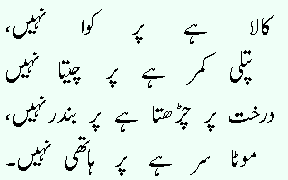 کالا ہے پر کوا نہیں،
پتلی کمر ہے پر چیتا نہیں
درخت پر چڑھتا ہے پر بندر نہیں،
موٹا سر ہے پر ہاتھی نہیں۔